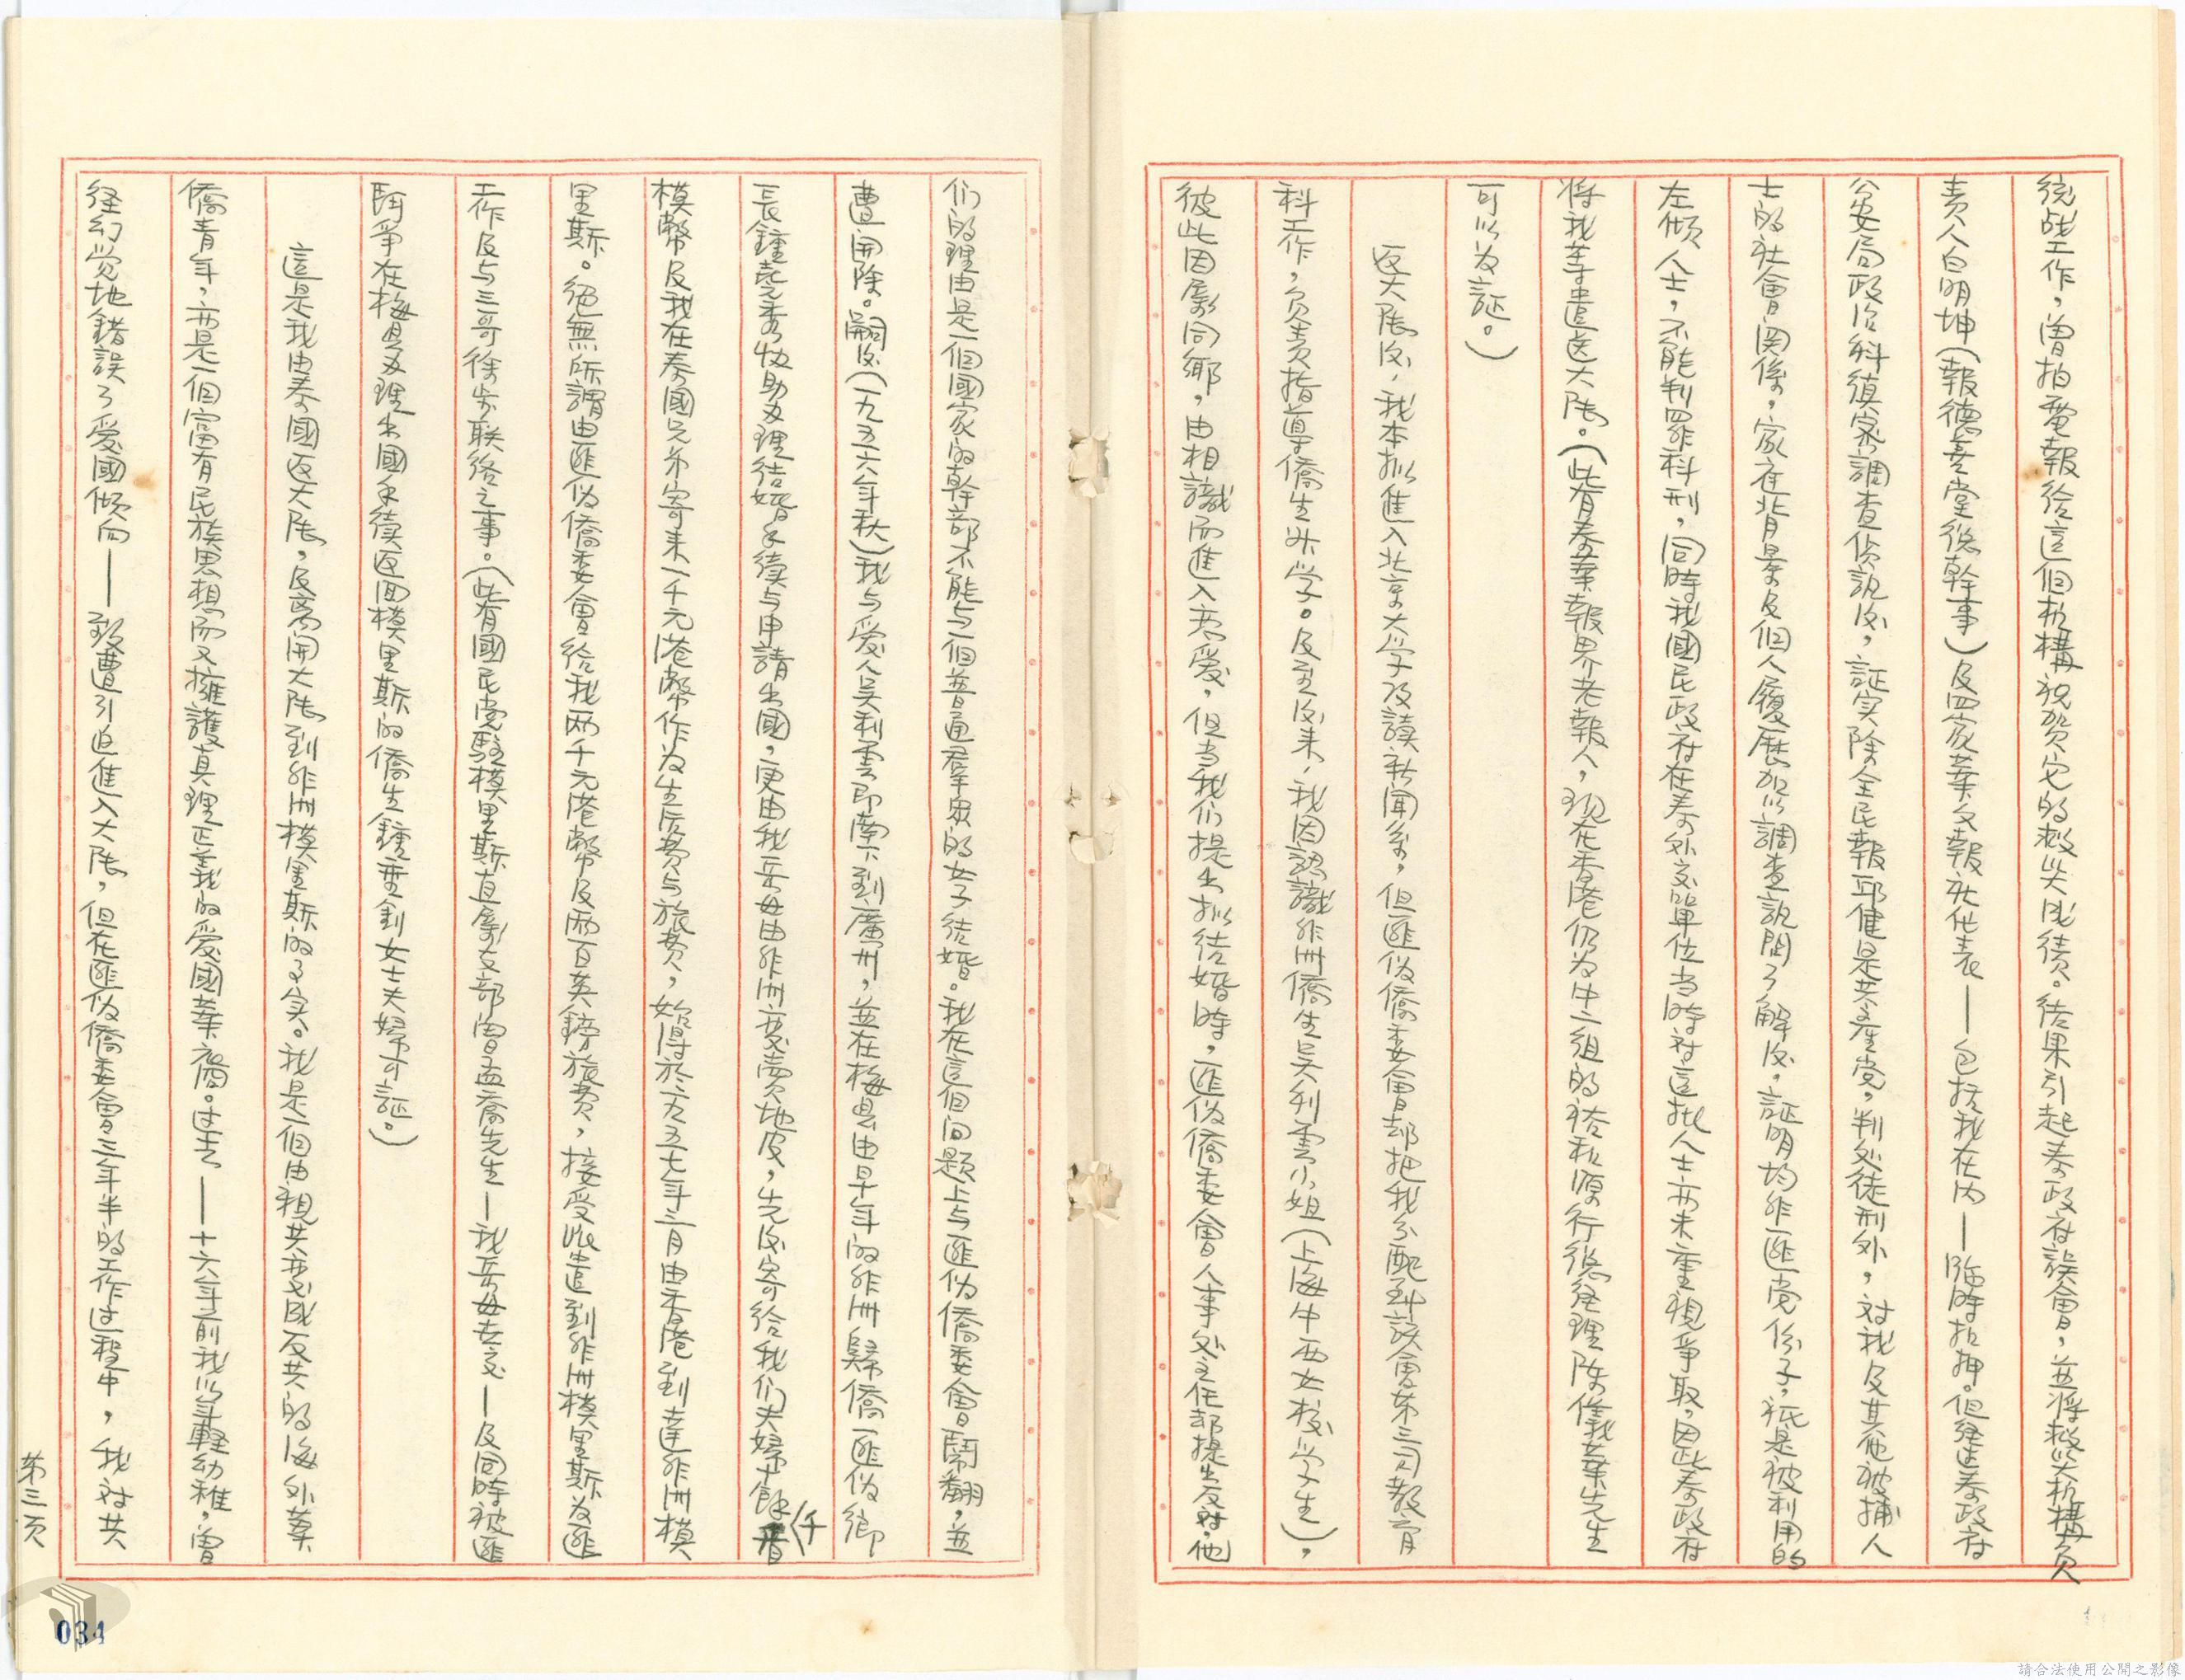 統战工作，曾拍電報给這個机構祝贺它的救災成绩。结果引起泰政府誤會，並将救災机構負
責人白明坤（報德善堂总幹事）及四家華文報社代表——包括我在内——臨時扣押。但经过泰政府
公安局政治科縝密調查偵訊後，証实除全民報邱健是共产党，判处徒刑外，对我及其他被捕人
士的社會関係，家庭背景及個人履歷加以調查訊問了解後，証明均非匪党份子，衹是被利用的
左傾人士，不能判罪科刑，同時我國民政府在泰外交單位当時对這批人士亦未重視争取，因此泰政府
将我等遣送大陆。（此有泰華報界老報人，現在香港仍为中二組的裕和源行总经理陈儀華先生
可以为証。）
返大陆後，我本拟進入北京大学攻讀新闻系，但匪伪僑委會却把我分配到該會第三司教育
科工作，负责指導僑生升学。及至後来，我因認識非洲僑生吴利雲小姐（上海中西女校学生），
彼此因系同鄉，由相識而進入恋愛，但当我们提出拟结婚時，匪伪僑委會人事处主任却提出反对，他
们的理由是一個國家的幹部不能与一個普通羣眾的女子结婚。我在這個问題上与匪伪僑委會鬧翻，並
遭開除。嗣後（一九五六年秋）我与爱人吴利雲即南下到廣州，並在梅县由早年的非洲歸僑匪伪鄉
長鍾堯秀协助办理结婚手续与申請出國，更由我岳母由非洲变卖地皮，先後寄给我们夫婦十餘千
模幣及我在泰國兄弟寄来一千元港幣作为生活费与旅费，始得於一九五七年三月由香港到達非洲模
里斯。绝無所謂由匪伪僑委會给我两千元港幣及兩百英鎊旅费，接受派遣到非洲模里斯为匪
工作及与三哥徐步联络之事。（此有國民党駐模里斯直屬支部曾孟喬先生—我岳母去交—及同時被匪
鬥爭在梅县办理出國手续返回模里斯的僑生鍾亜釗女士夫婦可証。）
這是我由泰國返大陆，及离開大陆到非洲模里斯的事实。我是一個由親共变成反共的海外華
僑青年，亦是一個富有民族思想而又擁護真理正義的爱國華裔。过去——十六年前我以年輕幼稚，曾
经幻覚地錯誤了爱國傾向——致遭引迫進入大陆，但在匪伪僑委會三年半的工作过程中，我对共
第三页
034
請合法使用公開之影像